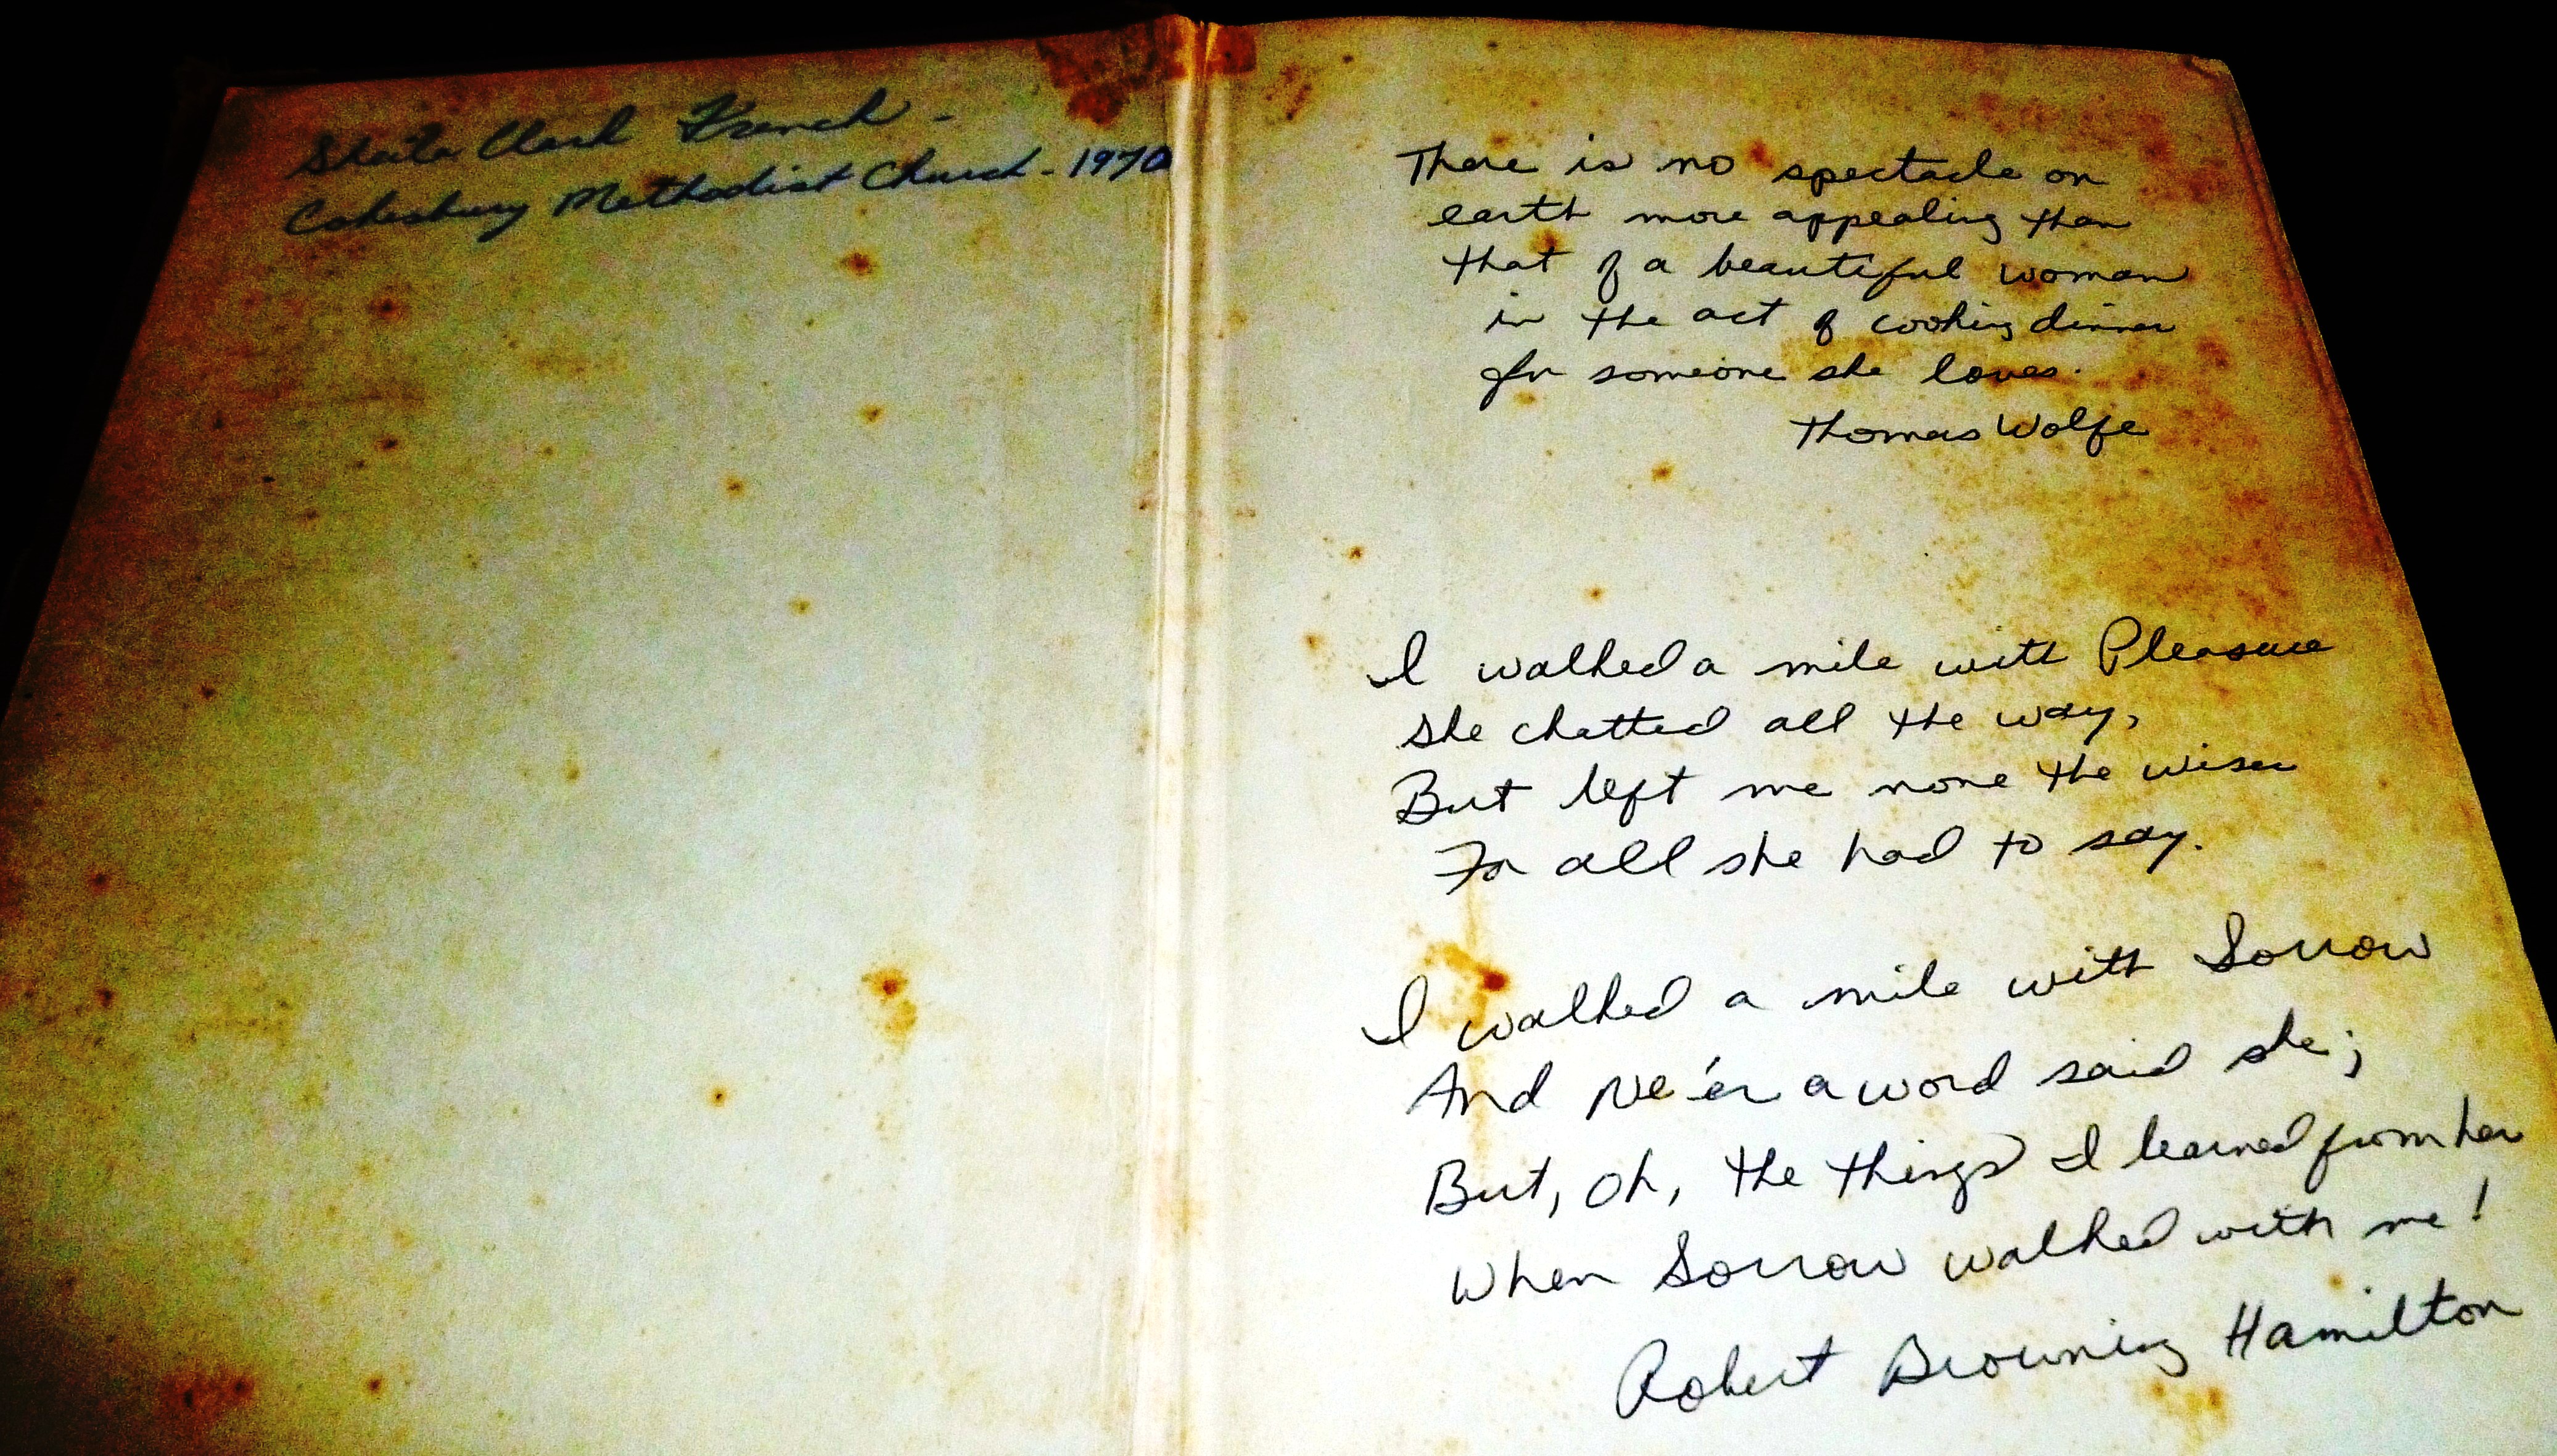 Sheila Clark French -
Cokesbury Methodist Church - 1970
There is no spectacle on
earth more appealing than
that of a beautiful woman
in the act of cooking dinner
for someone she loves.
Thomas Wolfe
I walked a mile with Pleasure
She chatted all the way,
But left me none the wiser
For all she had to say.
I walked a mile with Sorrow
And Ne'er a word said she;
But, oh, the things I learned from her
When Sorrow walked with me!
Robert Browning Hamilton